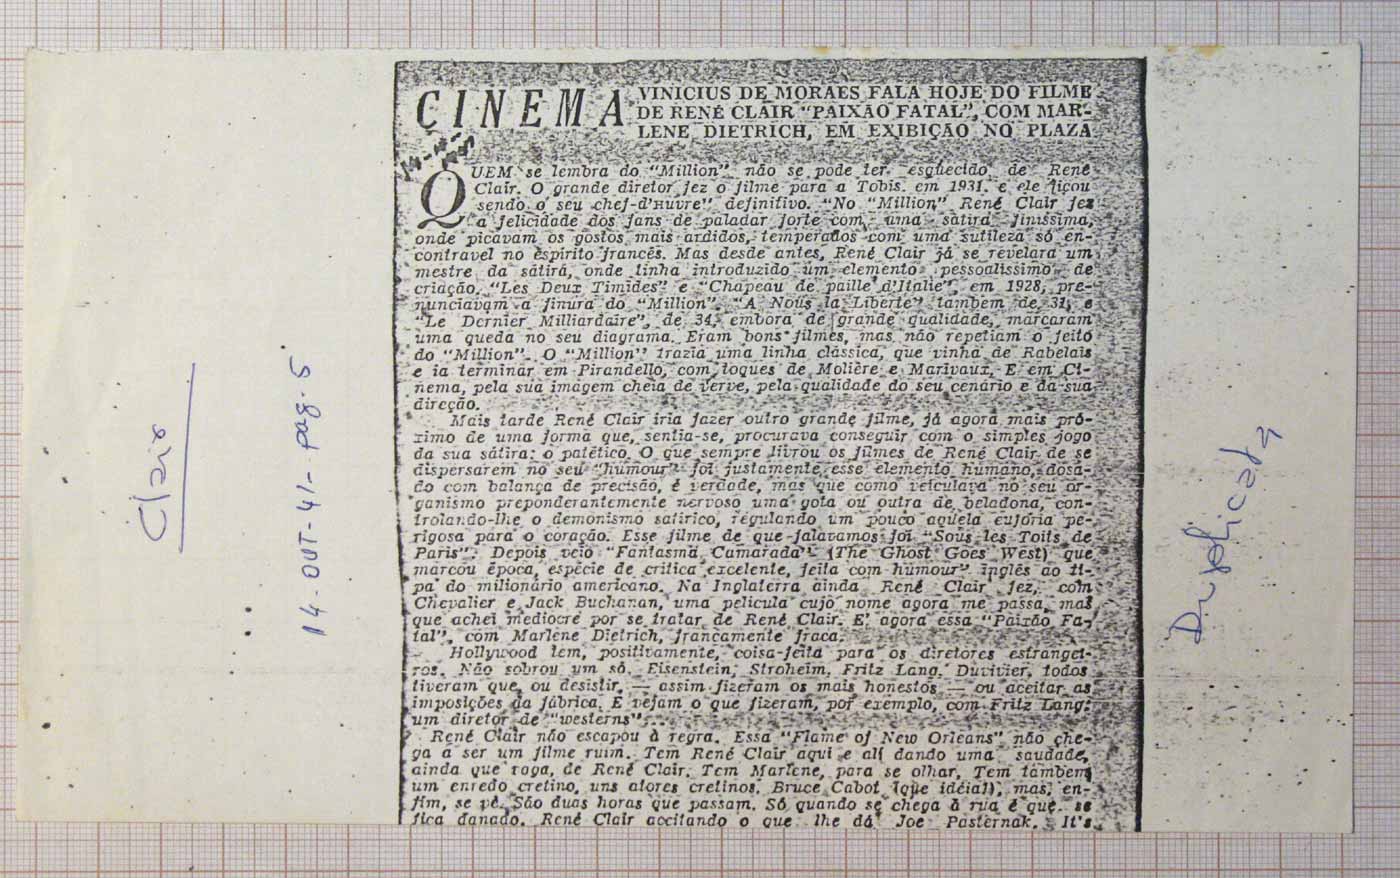 CINEMA
VINICIUS DE MORAES FALA HOJE DO FILME
DE RENÉ CLAIR "PAIXÃO FATAL", COM MAR-
LENE DIETRICH, EM EXIBIÇÃO NO PLAZA
14-10-
1941
QUEM se lembra do "Million" não se pode ter esquecido de René
Clair. O grande diretor fez o filme para a Tobis, em 1931, e ele ficou
sendo o seu chef-d'Huvre" definitivo. "No "Million" René Clair fez
a felicidade dos fans de paladar forte com uma satira finissima,
onde picavam os gostos mais ardidos, temperados com uma sutileza só en-
contravel no espirito francês. Mas desde antes, René Clair já se revelara um
mestre da sátira, onde tinha introduzido um elemento pessoalissimo de
criação. "Les Deux Timides" e "Chapeau de paille d'Italie", em 1928, pre-
nunciavam a finura do "Million". "A Nous la Liberte" tambem de 31, e
"Le Dernier Milliardaire", de 34, embora de grande qualidade, marcaram
uma queda no seu diagrama. Eram bons filmes, mas não repetiam o feito
do "Million". O "Million" trazia uma linha clássica, que vinha de Rabelais
e ia terminar em Pirandello, com toques de Molière e Marivaux. E em Ci-
nema, pela sua imagem cheia de verve, pela qualidade do seu cenário e da sua
direção.
Mais tarde René Clair iria fazer outro grande filme, já agora mais pró-
ximo de uma forma que, sentia-se, procurava conseguir com o simples jogo
da sua sátira: o patético. O que sempre livrou os filmes de René Clair de se
dispersarem no seu "humour" foi justamente esse elemento humano, dosa-
do com balança de precisão, é verdade, mas que como veiculava no seu or-
ganismo preponderantemente nervoso uma gota ou outra de beladona, con-
trolando-lhe o demonismo satirico, regulando um pouco aquela euforia pe-
rigosa para o coração. Esse filme de que falavamos foi "Sous les Toits de
Paris". Depois veio "Fantasma Camarada" (The Ghost Goes West) que
marcou época, espécie de critica excelente, feita com humour" inglês ao ti-
pa do milionário americano. Na Inglaterra ainda René Clair fez, com
Chevalier e Jack Buchanan, uma pelicula cujo nome agora me passa, mas
que achei mediocre por se tratar de René Clair. E' agora essa "Paixão Fa-
tal", com Marlene Dietrich, francamente fraca.
Hollywood tem, positivamente, coisa-feita para os diretores estrangei-
ros. Não sobrou um só. Eisenstein, Stroheim, Fritz Lang, Duvivier, todos
tiveram que, ou desistir, — assim fizeram os mais honestos — ou aceitar as
imposições da fábrica. E vejam o que fizeram, por exemplo, com Fritz Lang:
um diretor de "westerns"...
René Clair não escapou à regra. Essa "Flame of New Orleans" não che-
ga a ser um filme ruim. Tem René Clair aqui e ali dando uma saudade,
ainda que vaga, de René Clair. Tem Marlene, para se olhar, Tem tambem
um enredo cretino, uns atores cretinos, Bruce Cabot (que idéia!), mas, en-
fim, se vê. São duas horas que passam. Só quando se chega à rua é que se
fica danado. René Clair aceitando o que lhe dá Joe Pasternak. It's
Clair
14-OUT-41-pag.5
Duplicata